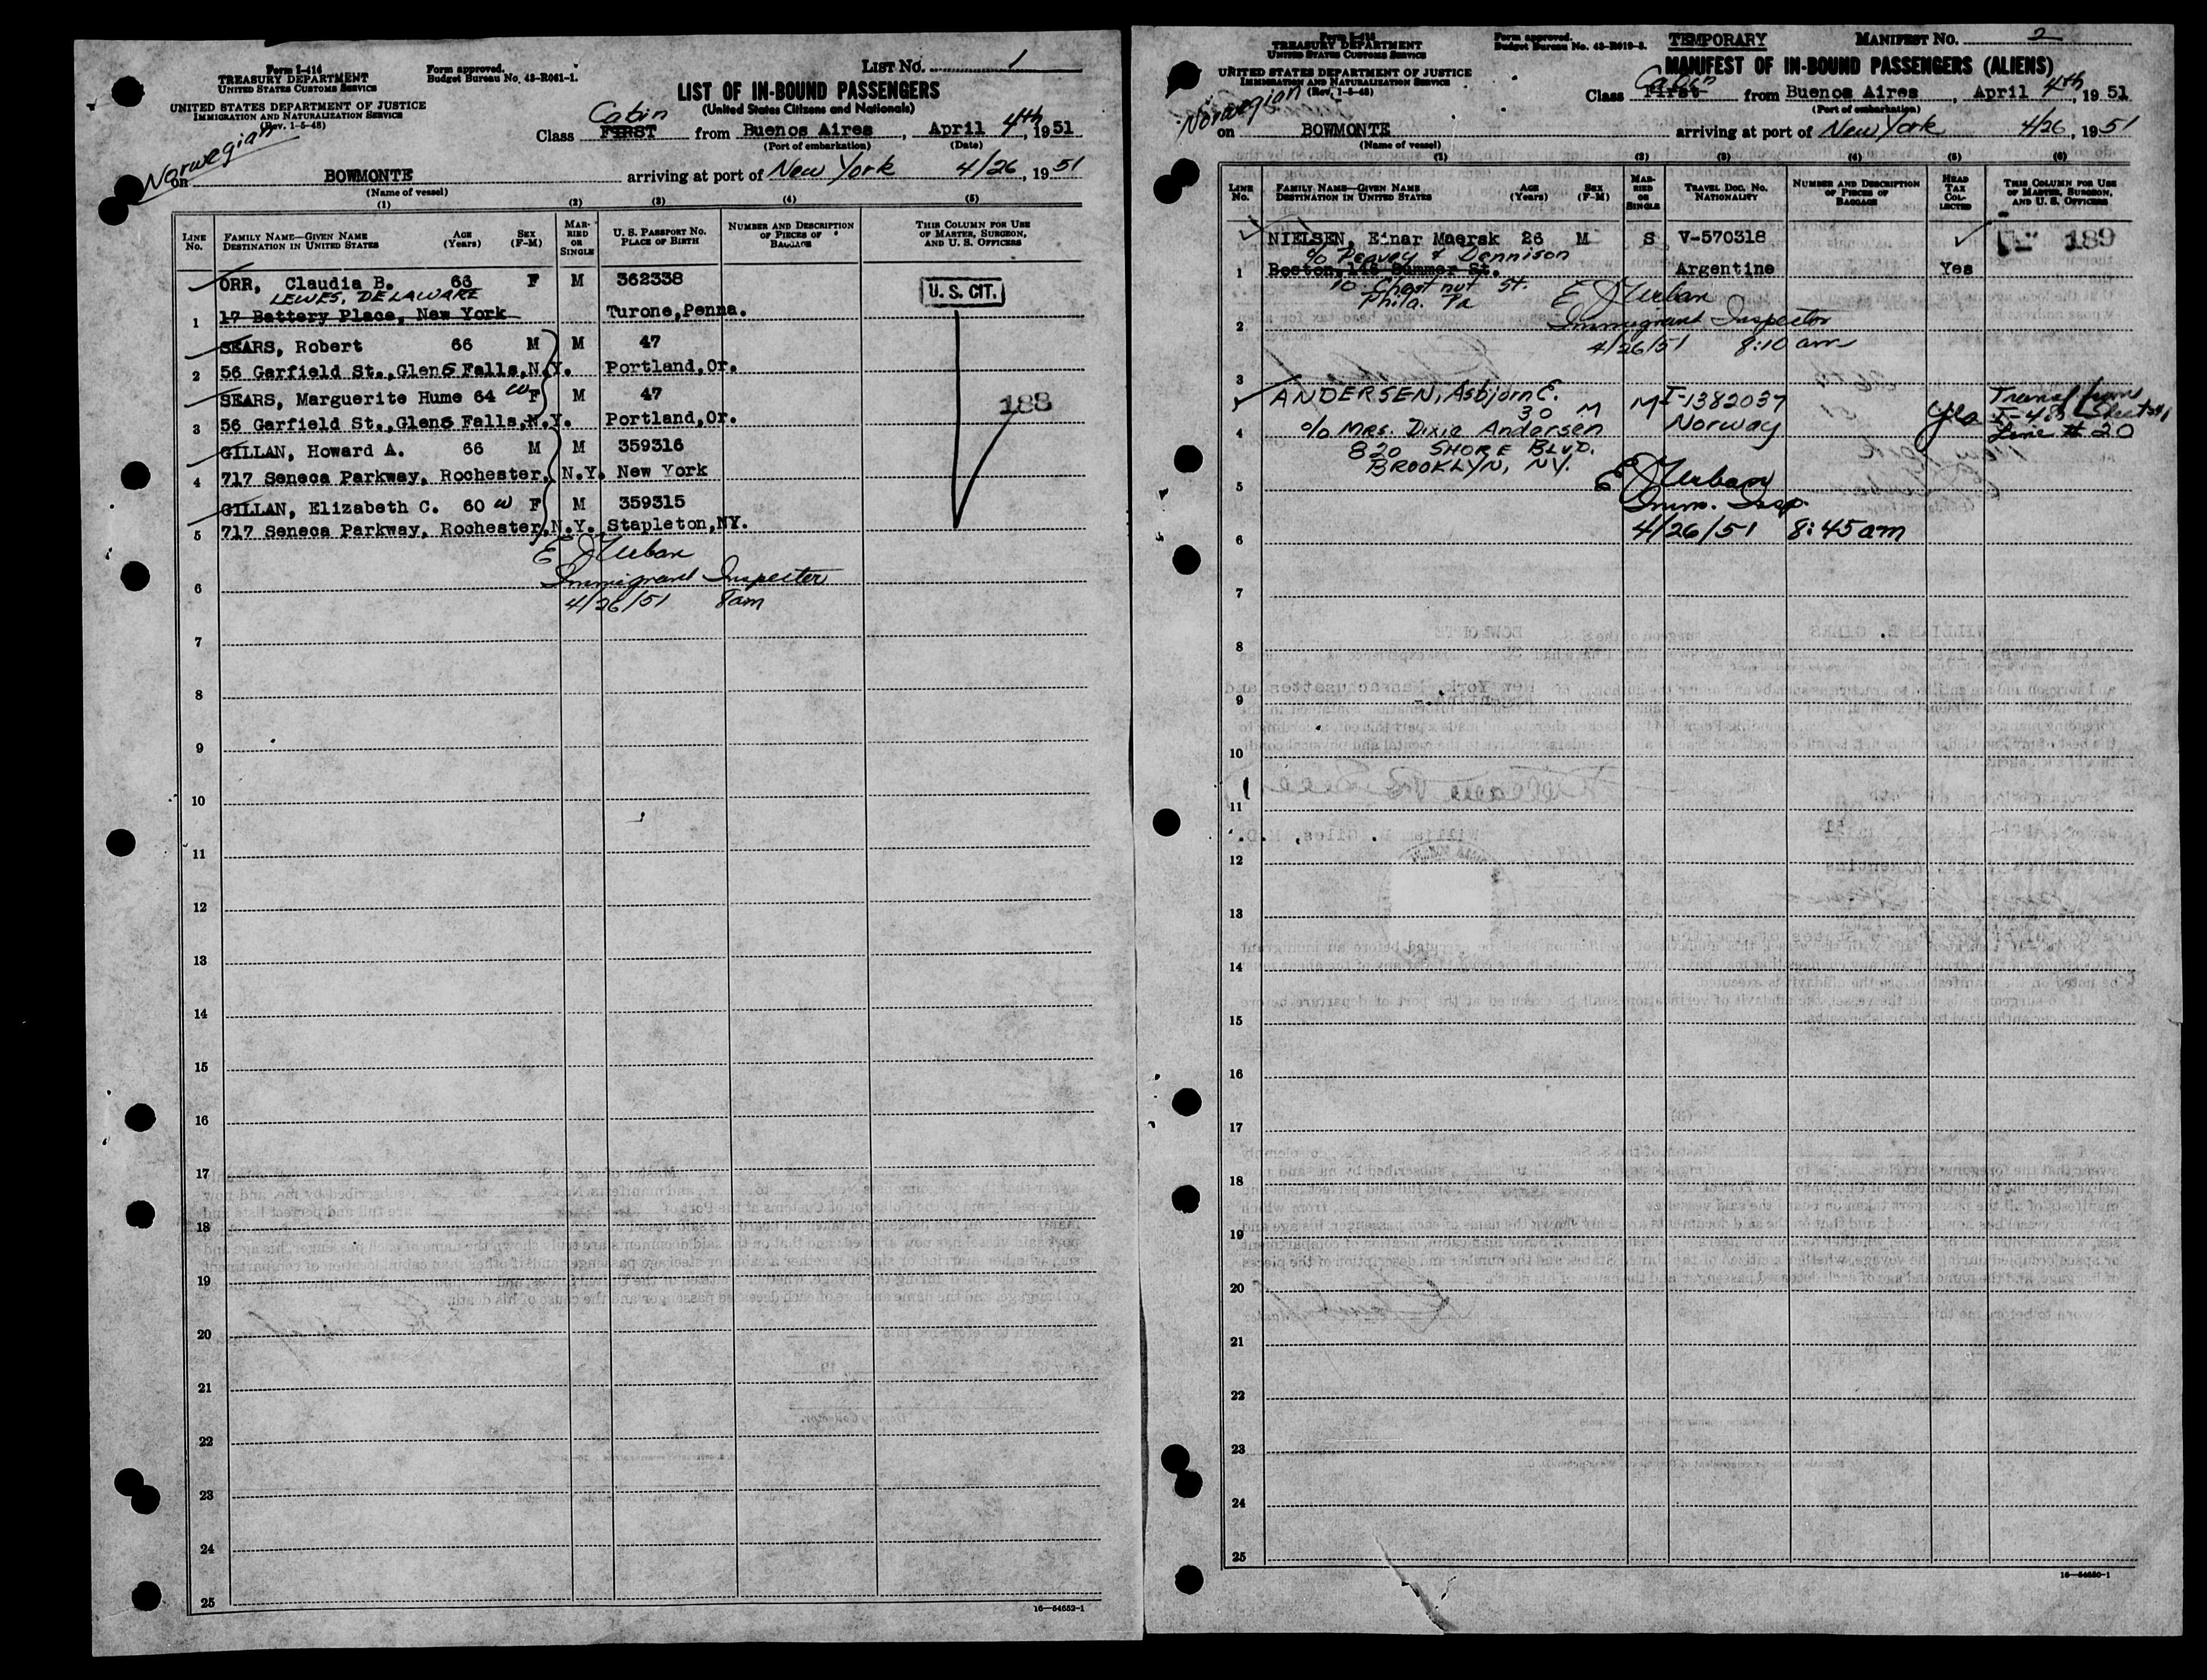 Form I-416
TREASURY DEPARTMENT
UNITED STATES CUSTOMS SERVICE
Form approved.
Budget Bureau No. 43-R061-1.
LIST No. 1
UNITED STATES DEPARTMENT OF JUSTICE
IMMIGRATION AND NATURALIZATION SERVICE
(Rev. 1-5-48)
LIST OF IN-BOUND PASSENGERS
(United States Citizens and Nationals)
Cabin
Class FIRST from Buenos Aires, April 4th, 1951
(Port of embarkation) (Date)
Norwegian
on BOWMONTE arriving at port of New York 4/26, 1951
(Name of vessel)
(1) (2) (3) (4) (5)
LINE No. FAMILY NAME—GIVEN NAME DESTINATION IN UNITED STATES AGE (Years) SEX (F-M) MARRIED OR SINGLE U. S. PASSPORT NO. PLACE OF BIRTH NUMBER AND DESCRIPTION OF PIECES OF BAGGAGE THIS COLUMN FOR USE OF MASTER, SURGEON, AND U. S. OFFICERS
ORR, Claudia B. 66 F M 362338 U. S. CIT.
LEWES, DELAWARE
1 17 Battery Place, New York Turone,Penna.
SEARS, Robert 66 M M 47
2 56 Garfield St.,Glens Falls,N.Y. Portland,Or.
SEARS, Marguerite Hume 64 W F M 47 188
3 56 Garfield St.,Glens Falls,N.Y. Portland,Or.
GILLAN, Howard A. 66 M M 359316
4 717 Seneca Parkway, Rochester, N.Y. New York
GILLAN, Elizabeth C. 60 W F M 359315
5 717 Seneca Parkway, Rochester,N.Y. Stapleton,NY.
E J Urban
6 Immigrant Inspector
4/26/51 8am
7
8
9
10
11
12
13
14
15
16
17
18
19
20
21
22
23
24
25
16—54652-1
Form I-416
TREASURY DEPARTMENT
UNITED STATES CUSTOMS SERVICE
Form approved.
Budget Bureau No. 43-R019-3.
TEMPORARY
MANIFEST No. 2
UNITED STATES DEPARTMENT OF JUSTICE
IMMIGRATION AND NATURALIZATION SERVICE
(Rev. 1-5-48)
MANIFEST OF IN-BOUND PASSENGERS (ALIENS)
Cabin
Class First from Buenos Aires, April 4th, 1951
(Port of embarkation)
Norwegian
on BOWMONTE arriving at port of New York 4/26, 1951
(Name of vessel)
(1) (2) (3) (4) (5) (6)
LINE No. FAMILY NAME—GIVEN NAME DESTINATION IN UNITED STATES AGE (Years) SEX (F-M) MARRIED OR SINGLE TRAVEL DOC. NO. NATIONALITY NUMBER AND DESCRIPTION OF PIECES OF BAGGAGE HEAD TAX COLLECTED THIS COLUMN FOR USE OF MASTER, SURGEON, AND U. S. OFFICERS
NIELSEN, Einar Maersk 26 M S V-570318 189
c/o Peavey & Dennison
1 Boston,148 Summer St. Argentine Yes
10 Chestnut St.
Phila. Pa
E J Urban
2 Immigrant Inspector
4/26/51 8:10 am
3
ANDERSEN, Asbjorn E. 30 M M I-1382037 Yes Transf from
4 c/o Mrs. Dixie Andersen Norway Line # 20
820 SHORE BLVD.
BROOKLYN, NY.
E J Urban
5 Imm. Insp.
6 4/26/51 8:45am
7
8
9
10
11
12
13
14
15
16
17
18
19
20
21
22
23
24
25
16—54650-1